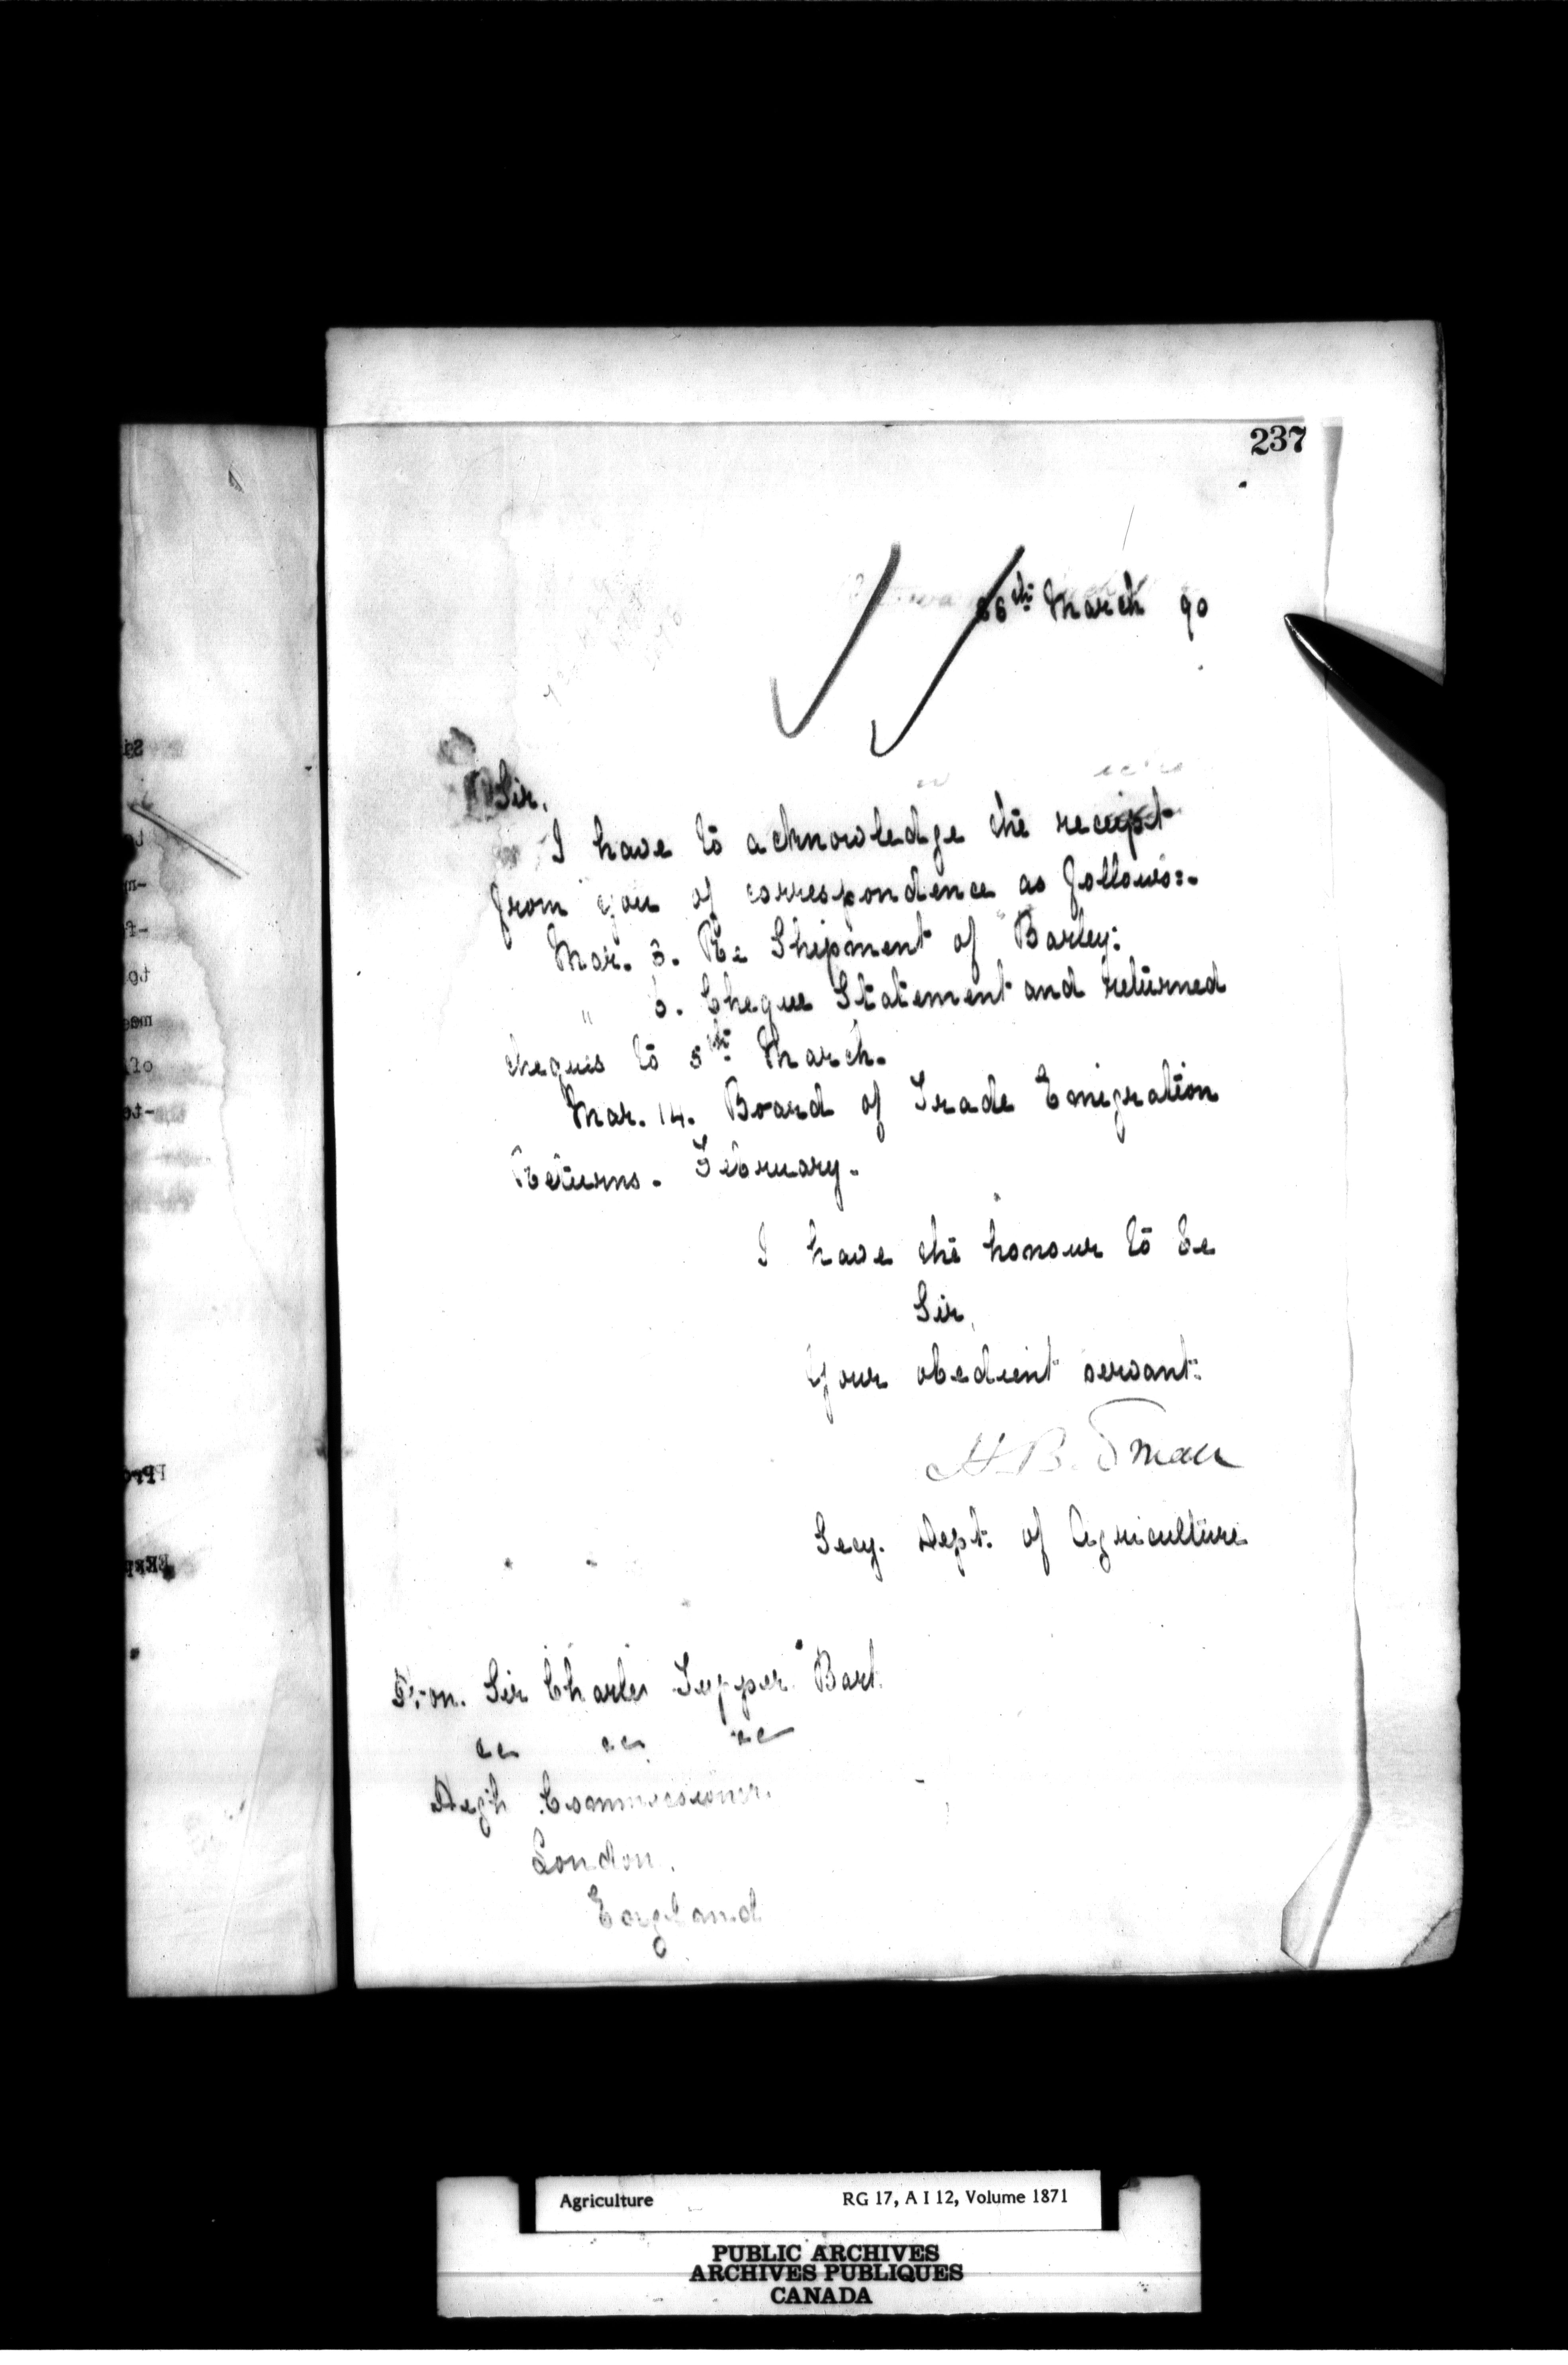 237
March 90
Sir,
I have to acknowledge the receipt
from you of correspondence as follows:-
Mar. 3. Re Shipment of Barley.
" 6. Cheque Statement and returned
cheques to 5th March.
Mar. 14. Board of Trade Emigration
Returns. February.
I have the honour to be
Sir,
Your obedient servant.
H. B. Small
Secy. Dept. of Agriculture
Hon. Sir Charles Tupper. Bart.
&c &c &c
High Commissioner.
London.
England
Agriculture RG 17, A I 12, Volume 1871
PUBLIC ARCHIVES
ARCHIVES PUBLIQUES
CANADA